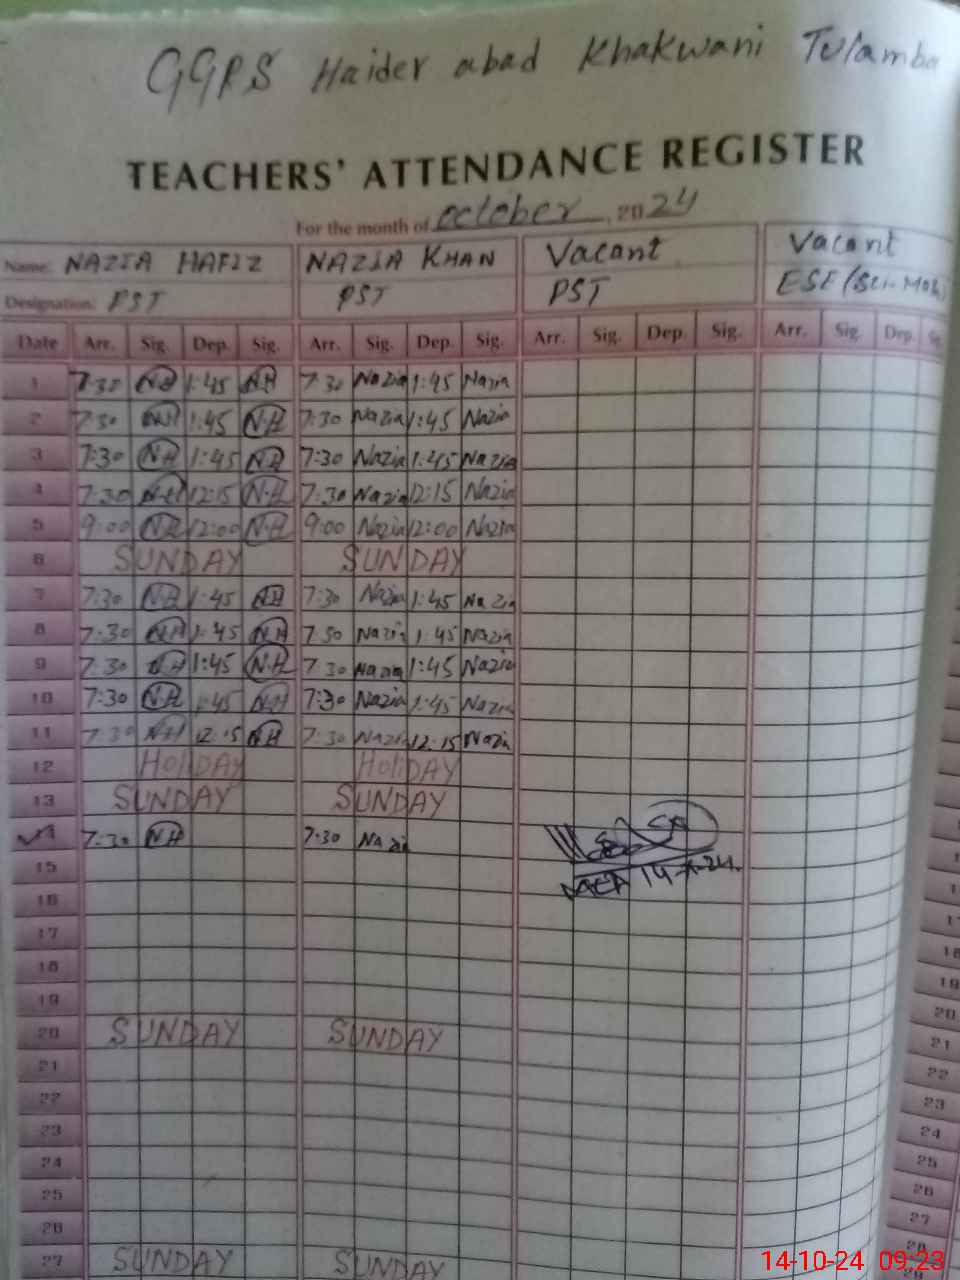 GGPS Haider abad Khakwani Tulamba
TEACHERS' ATTENDANCE REGISTER
For the month of october, 2024
Name: NAZIA HAFIZ NAZIA KHAN Vacant Vacant
Designation: PST PST PST ESE/Sci-Math
Date Arr. Sig. Dep. Sig. Arr. Sig. Dep. Sig. Arr. Sig. Dep. Sig. Arr. Sig. Dep.
1 7:30 NH 1:45 NH 7:30 Nazia 1:45 Nazia
2 7:30 NH 1:45 N.H 7:30 Nazia 1:45 Nazia
3 7:30 NH 1:45 NH 7:30 Nazia 1:45 Nazia
4 7:30 NH 12:15 N.H 7:30 Nazia 12:15 Nazia
5 9:00 NH 12:00 N.H 9:00 Nazia 12:00 Nazia
6 SUNDAY SUNDAY
7 7:30 NH 1:45 NH 7:30 Nazia 1:45 Nazia
8 7:30 NH 1:45 NH 7:30 Nazia 1:45 Nazia
9 7:30 NH 1:45 N.H 7:30 Nazia 1:45 Nazia
10 7:30 N.H 1:45 NH 7:30 Nazia 1:45 Nazia
11 7:30 NH 12:15 NH 7:30 Nazia 12:15 Nazia
12 HoliDAY HoliDAY
13 SUNDAY SUNDAY
14 7:30 NH 7:30 Nazia
MEA 14-X-24.
15
16
17
18
19
20 SUNDAY SUNDAY
21
22
23
24
25
26
27 SUNDAY SUNDAY
18
19
20
21
22
23
24
25
26
27
28
14-10-24 09:23